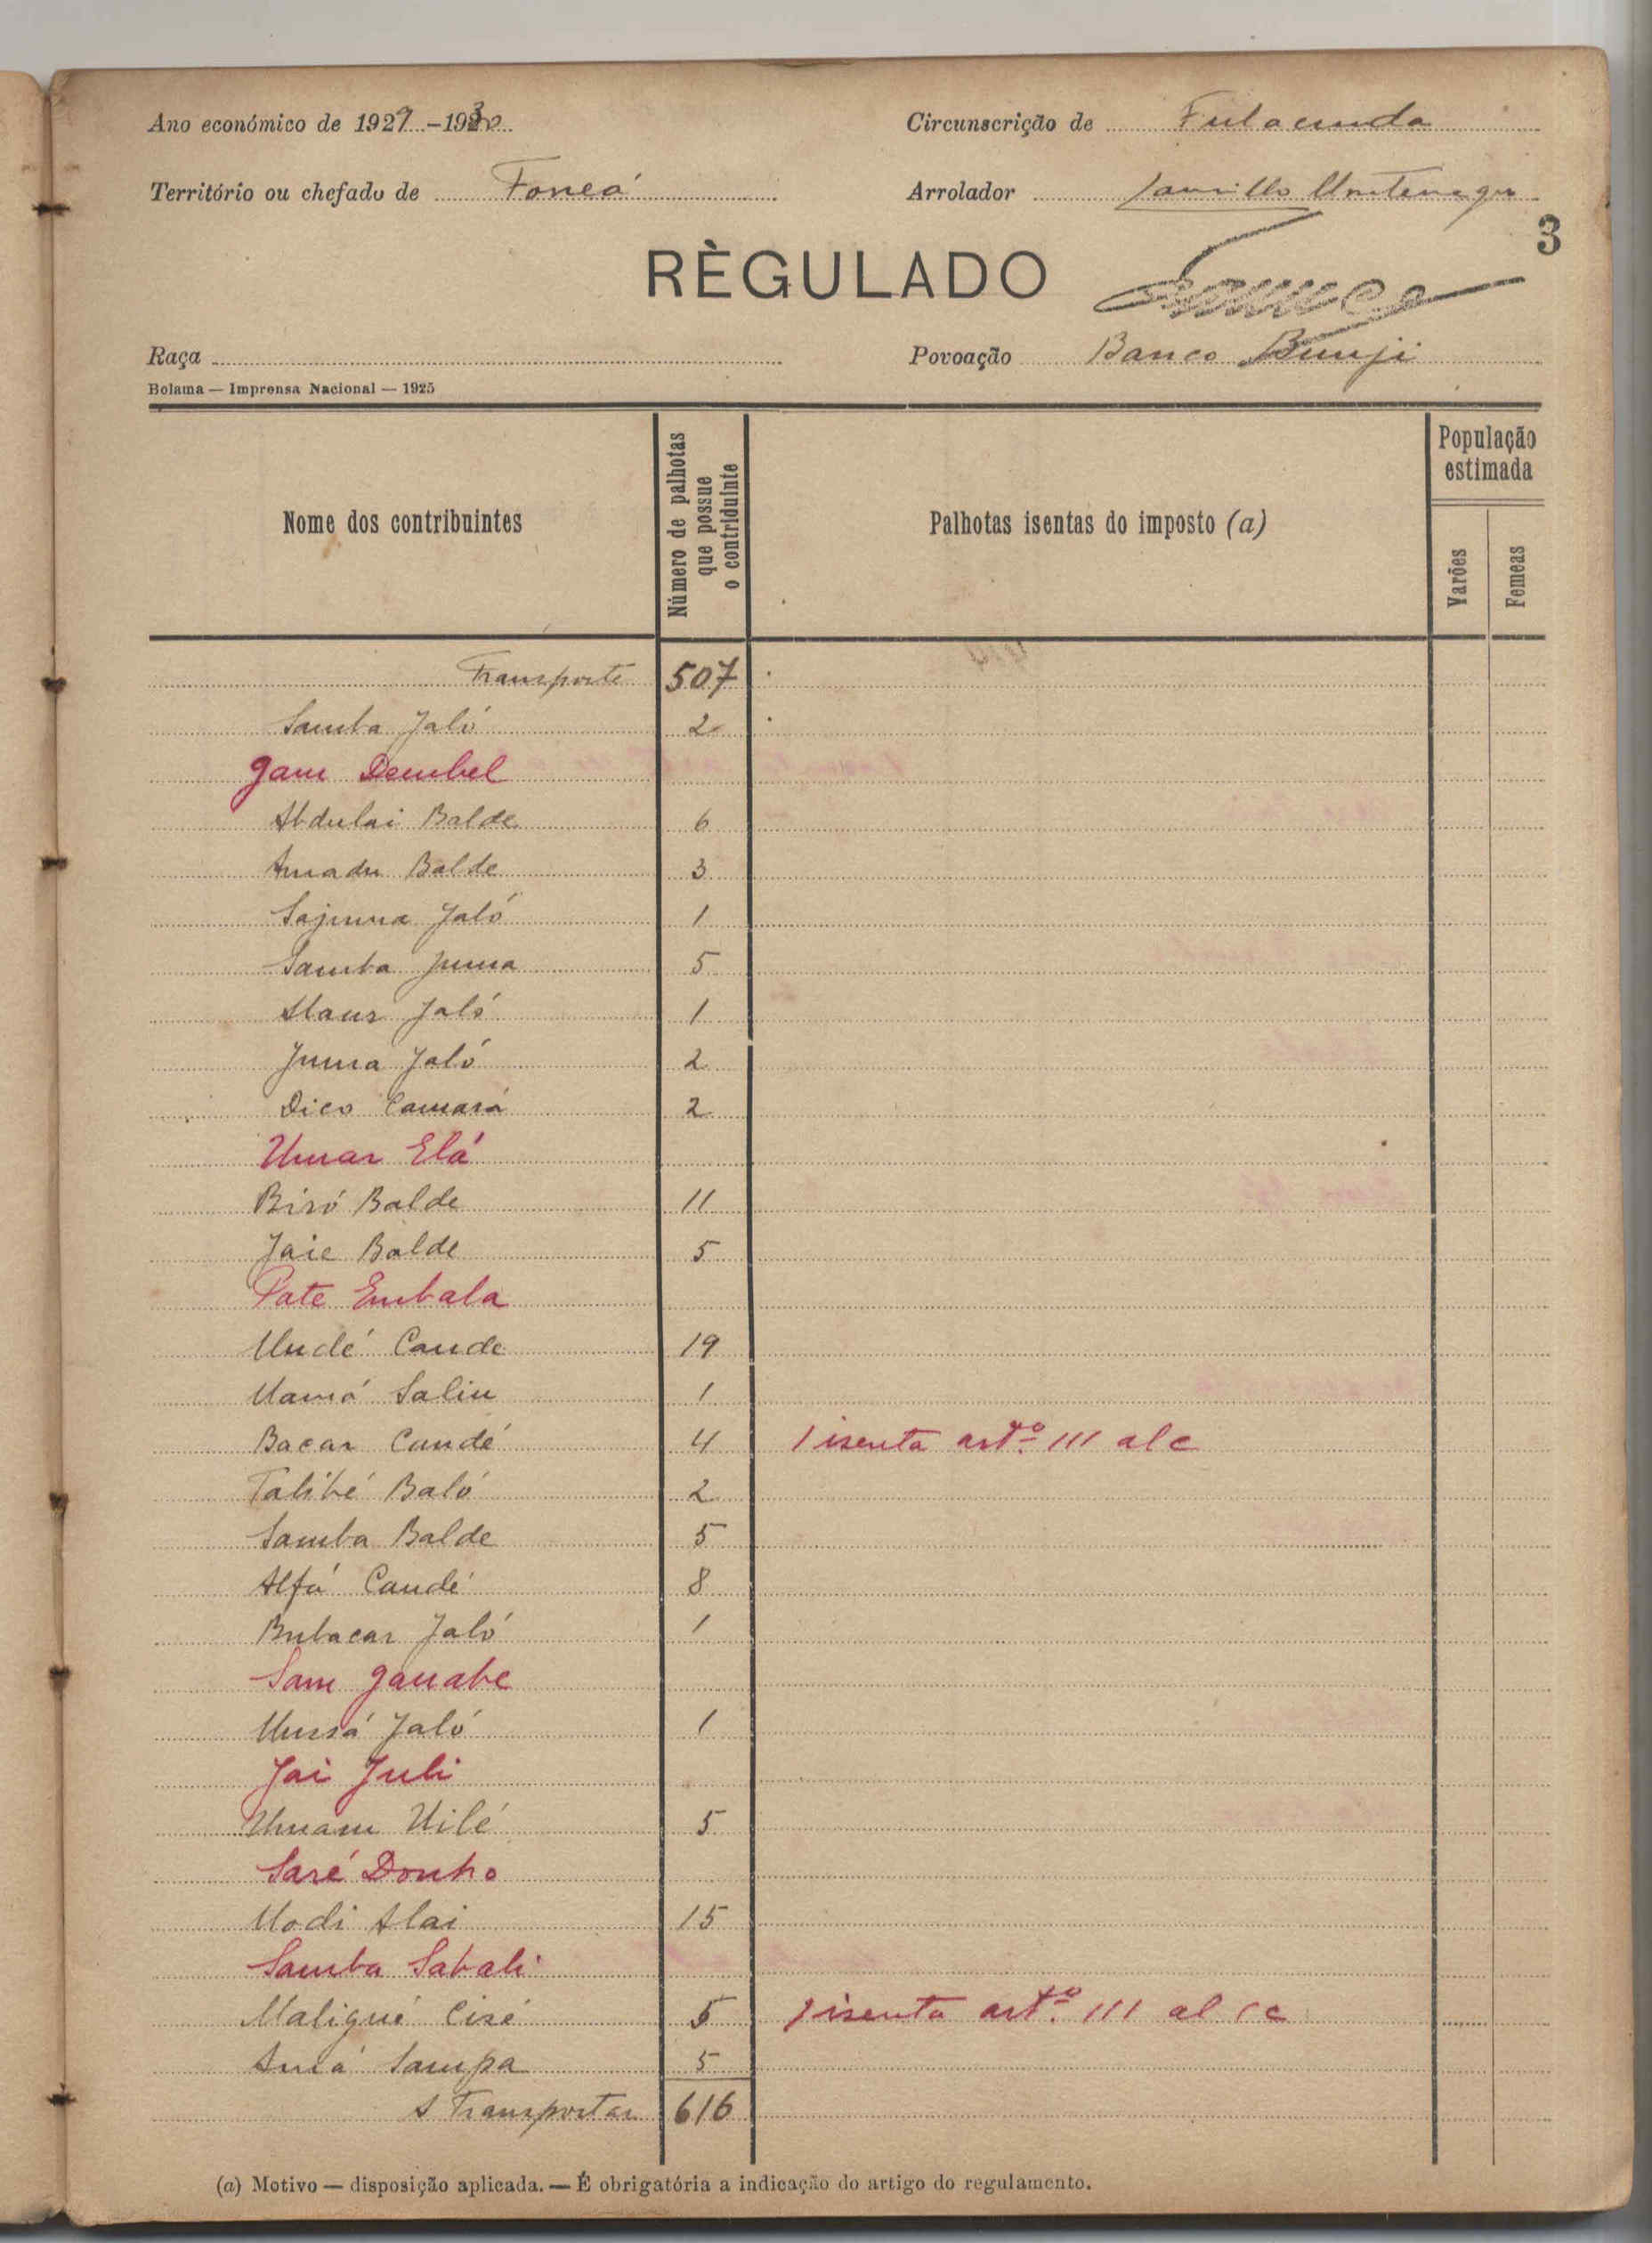 Ano económico de 1929-1930
Circunscrição de Fulacunda
Território ou chefado de Foneá
Arrolador
3
RÈGULADO
Raça
Povoação Banco Bunji
Bolama — Imprensa Nacional — 1925
Nome dos contribuintes
Número de palhotas que possue o contriduinte
Palhotas isentas do imposto (a)
População estimada
Varões
Femeas
Transporte 507
Samba Jaló 2
Gam Dembel
Abdulai Balde 6
Amadu Balde 3
Sajuma Jaló 1
Samba Juma 5
Jaló 1
Juma Jaló 2
Dico Camará 2
Umar Elá
Biró Balde 11
Jaie Balde 5
Pate Embala
Undé Cande 19
Mamá Saliu 1
Bacar Candé 4 1 isenta artº III al c
Talibé Baló 2
Samba Balde 5
Alfá Candé 8
Bubacar Jaló 1
Sam Ganabe
Mussá Jaló 1
Jai Juli
Umaru Uilé 5
Saré Donho
Modi Alai 15
Samba Sabali
Maligué Cisé 5 1 isenta artº III al c
Amá Sampa 5
A Transportar 616
(a) Motivo — disposição aplicada. — É obrigatória a indicação do artigo do regulamento.